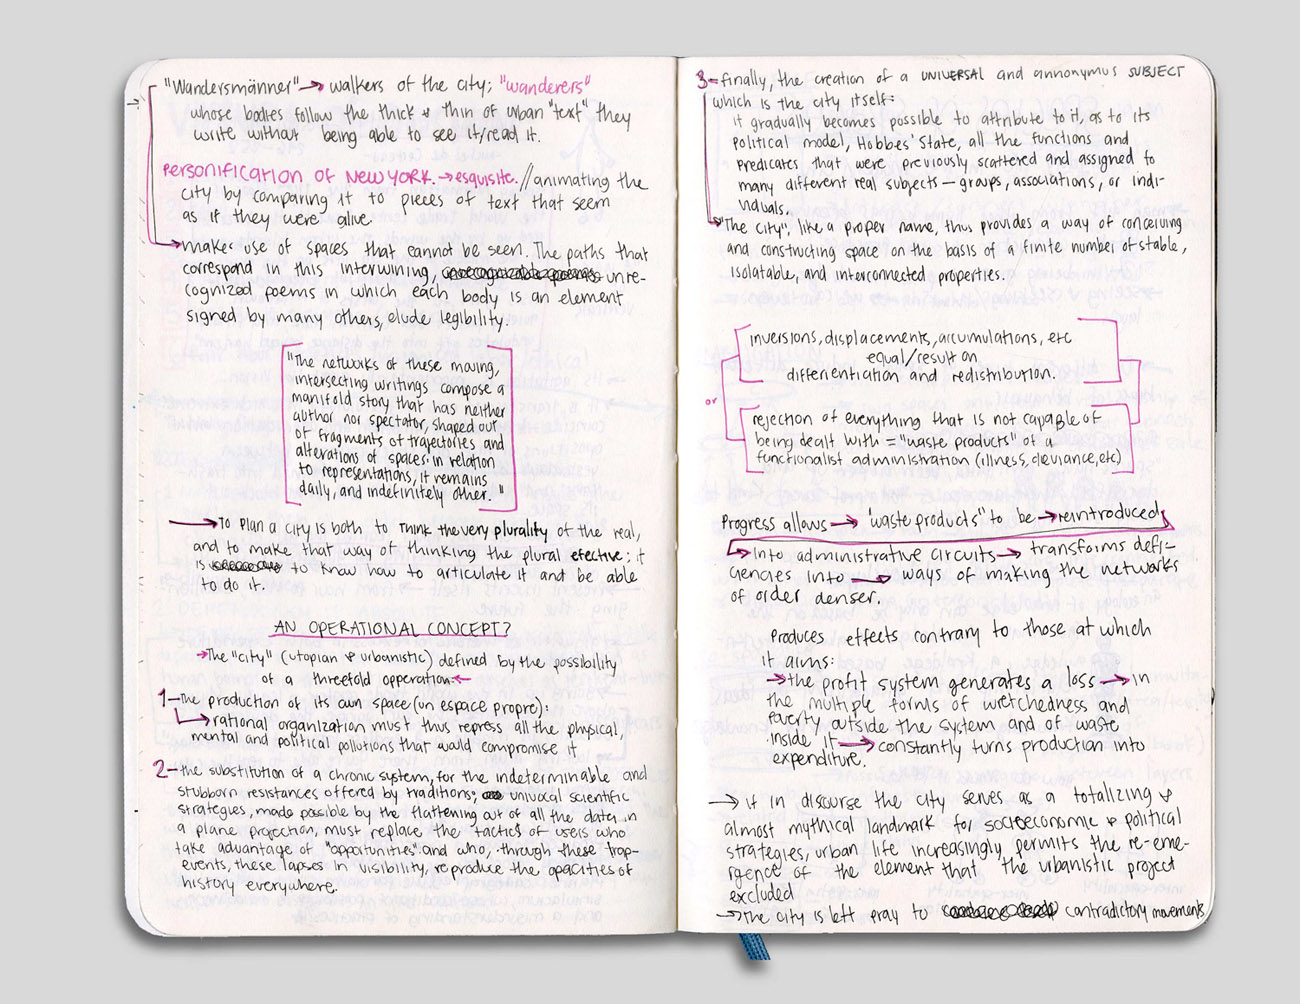 "Wandersmänner" → walkers of the city; "wanderers"
whose bodies follow the thick & thin of urban "text" they
write without being able to see it/read it.
Personification of New York. → esquisite. // animating the
city by comparing it to pieces of text that seem
as if they were alive.
→ make use of spaces that cannot be seen. The paths that
correspond in this intervining, unre-
cognized poems in which each body is an element
signed by many others, elude legibility.
"The networks of these moving,
intersecting writings compose a
manifold story that has neither
author nor spectator, shaped out
of fragments of trajectories and
alterations of spaces: in relation
to representations, it remains
daily, and indefinitely other."
→ To plan a city is both to think the very plurality of the real,
and to make that way of thinking the plural efective; it
is to know how to articulate it and be able
to do it.
AN OPERATIONAL CONCEPT?
→ The "city" (utopian & urbanistic) defined by the possibility
of a threefold opperation: ←
1- The production of its own space (un espace propre):
→ rational organization must thus repress all the physical,
mental and political pollutions that would compromise it
2- the substitution of a chronic system, for the indeterminable and
stubborn resistances offered by traditions; univocal scientific
strategies, made possible by the flattening out of all the data in
a plane projection, must replace the tactics of users who
take advantage of "opportunities" and who, through these trap-
events, these lapses in visibility, reproduce the opacities of
history everywhere.
3- finally, the creation of a UNIVERSAL and annonymus SUBJECT
which is the city itself:
it gradually becomes possible to attribute to it, as to its
political model, Hobbes' State, all the functions and
predicates that were previously scattered and assigned to
many different real subjects — groups, associations, or indi-
viduals.
→ "The city", like a proper name, thus provides a way of conceiving
and constructing space on the basis of a finite number of stable,
isolatable, and interconnected properties.
inversions, displacements, accumulations, etc
equal/result on
differentiation and redistribution.
or
rejection of everything that is not capable of
being dealt with = "waste products" of a
functionalist administration (illness, deviance, etc)
Progress allows → "waste products" to be → reintroduced
→ into administrative circuits → transforms defi-
ciencies into → ways of making the networks
of order denser.
Produces effects contrary to those at which
it aims:
→ the profit system generates a loss → in
the multiple forms of wretchedness and
poverty outside the system and of waste
inside it → constantly turns production into
expenditure.
→ if in discourse the city serves as a totalizing &
almost mythical landmark for socioeconomic & political
strategies, urban life increasingly permits the re-eme-
rgence of the element that the urbanistic project
excluded
→ The city is left pray to contradictory movements